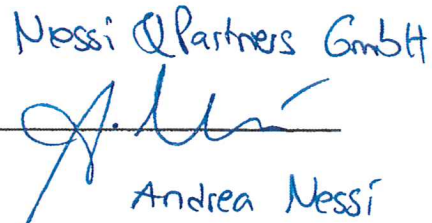 Nessi & Partners GmbH
A. Nessi
Andrea Nessi